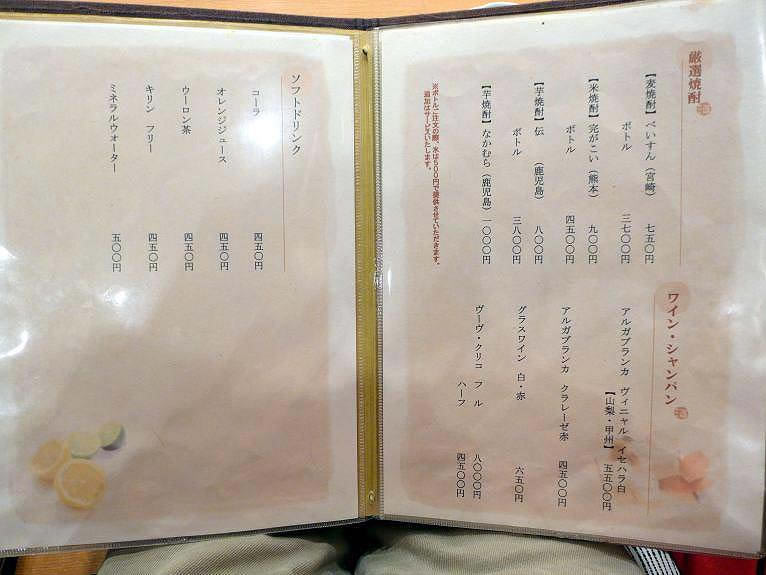 厳選焼酎
【麦焼酎】べいすん（宮崎） 七五〇円
ボトル 三七〇〇円
【米焼酎】完がこい（熊本） 九〇〇円
ボトル 四五〇〇円
【芋焼酎】伝（鹿児島） 八〇〇円
ボトル 三八〇〇円
【芋焼酎】なかむら（鹿児島） 一〇〇〇円
※ボトルご注文の際、氷は５００円で提供させていただきます。
追加はサービスいたします。
ワイン・シャンパン
アルガブランカ ヴィニャル イセハラ白
【山梨・甲州】 五五〇〇円
アルガブランカ クラレーゼ赤 四五〇〇円
グラスワイン 白・赤 六五〇円
ヴーヴ・クリコ フル 八〇〇〇円
ハーフ 四五〇〇円
ソフトドリンク
コーラ 四五〇円
オレンジジュース 四五〇円
ウーロン茶 四五〇円
キリン フリー 四五〇円
ミネラルウォーター 五〇〇円